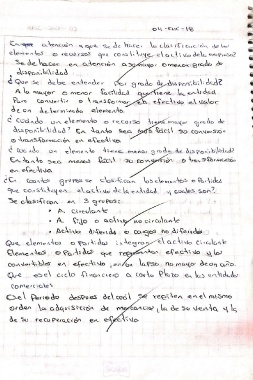 04-Ene-18
En que atención a que se debe hacer la clasificación de los
elementos o recursos que constituye el activo de la empresa?
Se debe hacer en atención a su mayor o menor grado de
disponibilidad
¿Que se debe entender por grado de disponibilidad?
A la mayor o menor facilidad que tiene la entidad
Para convertir o transformar en efectivo el valor
de un determinado elemento
¿Cuando un elemento o recurso tiene mayor grado de
disponibilidad? En tanto sea más facil su conversion
o transformación en efectivo
¿Cuando un elemento tiene menos grado de disponibilidad?
En tanto sea menos facil su conversión o transformación
en efectivo
¿En cuantos grupos se clasifican los elementos o Partidas
que constituyen el activo de la entidad y cuales son?
Se clasifican en 3 grupos:
• A. circulante
• A. fijo o activo no circulante
• Activo diferido o cargos diferidos
Que elementos o partidas integran el activo circulante
Elementos o Partidas que representan efectivo y los
convertibles en efectivo, en un lapso no mayor de un año.
Que es el ciclo financiero a corto Plazo en las entidades
comerciales
Es el Periodo despues del cual se repiten en el mismo
orden la adquisición de mercancías, la de su venta y la
de su recuperación en efectivo